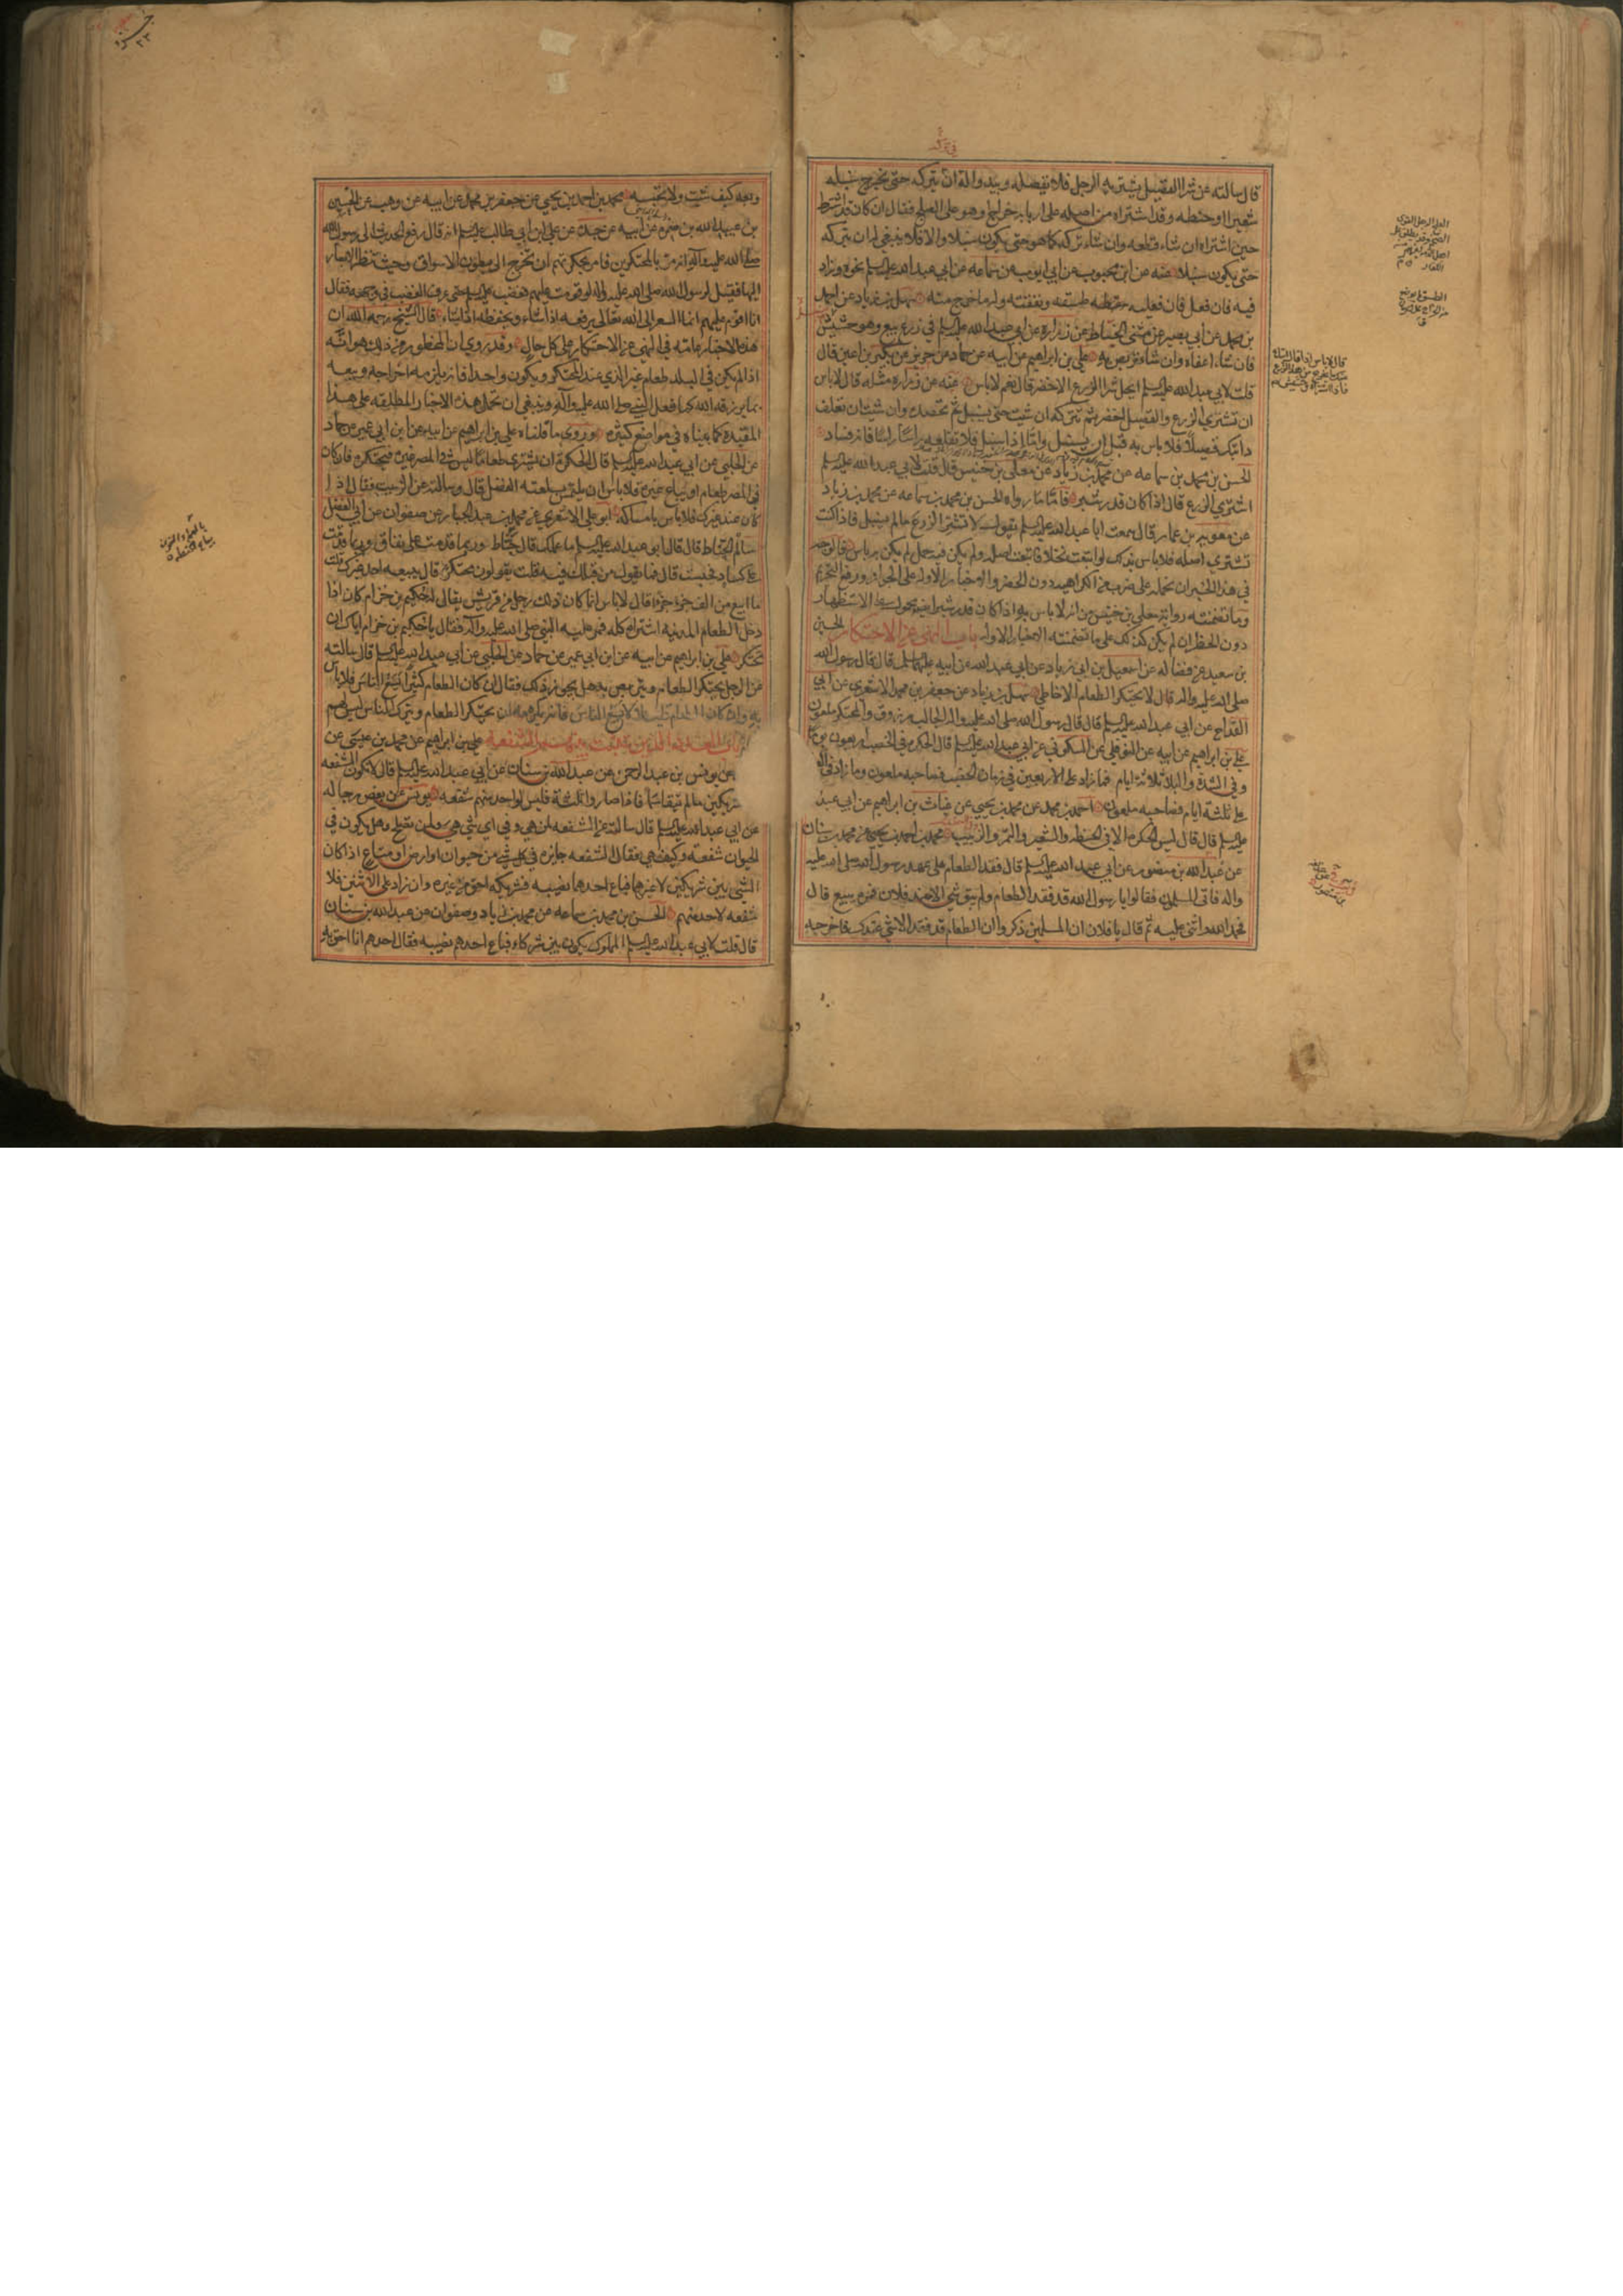 قال سالته عن شرا الفصيل يشتريه الرجل فلا يفصله ويبدو اله ان يتركه حتى يخرج سنبله
شعيرا او حنطه وقد اشتراه من اصله على اربابه خراج او هو على العلج فقال ان كان قد اشترط
حين اشتراه ان شاء قطعه وان شاء تركه كما هو حتى يكون سنبلا والا فلا ينبغي له ان يتركه
حتى يكون سنبلا عنه عن ابن محبوب عن ابي ايوب عن سماعه عن ابي عبد الله عليه السلم نحوه وزاد
فيه فان فعل فان فعليه طسقه ونفقته وله ما خرج منه سهل بن زياد عن احمد
بن محمد عن ابي بصير عن مثنى الحناط عن زراره عن ابي عبد الله عليه السلم في زرع بيع وهو حشيش
فان شاء اعفاه وان شاء تربص به علي بن ابراهيم عن ابيه عن حماد عن حريز عن بكير بن اعين قال
قلت لابي عبد الله عليه السلم ايحل شرا الزرع الاخضر قال نعم لا باس عنه عن زراره مثله قال لا باس
ان تشتري الزرع والفصيل اخضر ثم تتركه ان شئت حتى يسنبل ثم تحصده وان شئت ان تعلف
دابتك فصيلا فلا باس به قبل ان يسنبل واما اذا سنبل فلا تعلفه راسا راسا فانه فساد
الحسن بن محمد بن سماعه عن محمد بن زياد عن معلى بن خنيس قال قلت لابي عبد الله عليه السلم
اشتري الزرع قال اذا كان قدر شبر فاما ما رواه الحسن بن محمد بن سماعه عن محمد بن زياد
عن معويه بن عمار قال سمعت ابا عبد الله عليه السلم يقول لا تشتر الزرع ما لم يسنبل فاذا كنت
تشتري اصله فلا باس بذلك او ابتعت نخلا فابتعت اصله ولم يكن فيه حمل لم يكن به باس فالوجه
في هذا الخبر ان نحمله على ضرب من الكراهيه دون الحظر والاخبار الاوله على الجواز ورفع التحريم
وما تضمنته روايه معلى بن خنيس من انه لا باس به اذا كان قدر شبر ايضا محمول على الاستظهار
دون الحظر ان لم يكن كذلك على ما تضمنته الاخبار الاوله باب النهي عن الاحتكار الحسين
بن سعيد عن فضاله عن اسمعيل بن ابي زياد عن ابي عبد الله عن ابيه عليهما السلم قال قال رسول الله
صلى الله عليه واله قال لا يحتكر الطعام الا خاطي سهل بن زياد عن جعفر بن محمد الاشعري عن ابي
القداح عن ابي عبد الله عليه السلم قال قال رسول الله صلى الله عليه واله الجالب مرزوق والمحتكر ملعون
علي بن ابراهيم عن ابيه عن النوفلي عن السكوني عن ابي عبد الله عليه السلم قال الحكره في الخصب اربعون يوما
وفي الشده والبلا ثلاثه ايام فما زاد على الاربعين في زمان الخصب فصاحبه ملعون وما زاد في العسره
على ثلثه ايام فصاحبه ملعون احمد بن محمد عن محمد بن يحيى عن غياث بن ابراهيم عن ابي عبد
عليه السلم قال قال ليس الحكره الا في الحنطه والشعير والتمر والزبيب محمد بن احمد بن يحيى عن محمد بن سنان
عن عبد الله بن منصور عن ابي عبد الله عليه السلم قال فقد الطعام على عهد رسول الله صلى الله عليه
واله فاتى المسلمون فقالوا يا رسول الله قد فقد الطعام ولم يبق شي الا عند فلان فمره يبيع قال
فحمد الله واثنى عليه ثم قال يا فلان ان المسلمين ذكروا ان الطعام قد فقد الا شي عندك فاخرجه
وبعه كيف شئت ولا تحبسه محمد بن احمد بن يحيى عن جعفر بن محمد عن ابيه عن وهب عن الحسين
بن عبيد الله بن ضمره عن ابيه عن جده عن علي ابن ابي طالب عليه السلم انه قال رفع الحديث الى رسول الله
صلى الله عليه واله انه مر بالمحتكرين فامر بحكرتهم ان تخرج الى بطون الاسواق وحيث تنظر الابصار
اليها فقيل لرسول الله صلى الله عليه واله لو قومت عليهم فغضب عليه السلم حتى عرف الغضب في وجهه فقال
انا اقوم عليهم انما السعر الى الله تعالى يرفعه اذا شاء ويخفضه اذا شاء قال الشيخ رحمه الله ان
هذه الاخبار عامه في النهي عن الاحتكار على كل حال وقد روي ان المحظور من ذلك هو انه
اذا لم يكن في البلد طعام غير الذي عند المحتكر ويكون واحدا فانه يلزمه اخراجه وبيعه
بما يرزقه الله كما فعل النبي صلى الله عليه واله وينبغي ان نحمل هذه الاخبار المطلقه على هذا
المقيده كما بيناه في مواضع كثيره وروى ما قلناه علي بن ابراهيم عن ابيه عن ابن ابي عمير عن حماد
عن الحلبي عن ابي عبد الله عليه السلم قال الحكره ان يشتري طعاما ليس في المصر غيره فيحتكره فان كان
في المصر طعام او يباع غيره فلا باس ان يلتمس بسلعته الفضل قال وسالته عن الزيت فقال اذا
كان عند غيرك فلا باس بامساكه ابو علي الاشعري عن محمد بن عبد الجبار عن صفوان عن ابي الفضل
سالم الحناط قال قال ابو عبد الله عليه السلم ما عملك قال حناط وربما قدمت على نفاق وربما قدمت
على كساد فحبست قال فما يقول من قبلك فيه قلت يقولون محتكر قال يبيعه احد غيرك قلت
ما ابيع من الف جزء جزءا قال لا باس انما كان ذلك رجل من قريش يقال له حكيم بن حزام كان اذا
دخل الطعام المدينه اشتراه كله فمر عليه النبي صلى الله عليه واله فقال يا حكيم بن حزام اياك ان
تحتكر علي بن ابراهيم عن ابيه عن ابن ابي عمير عن حماد عن الحلبي عن ابي عبد الله عليه السلم قال سالته
عن الرجل يحتكر الطعام ويتربص به هل يجوز ذلك فقال ان كان الطعام كثيرا يسع الناس فلا باس
به وان كان الطعام قليلا لا يسع الناس فانه يكره ان يحتكر الطعام ويترك الناس ليس لهم
علي بن ابراهيم عن محمد بن عيسى عن
عن يونس بن عبد الرحمن عن عبد الله بن سنان عن ابي عبد الله عليه السلم قال لا تكون الشفعه
شريكين ما لم يتقاسما فاذا صاروا ثلثه فليس لواحد منهم شفعه يونس عن بعض رجاله
عن ابي عبد الله عليه السلم قال سالته عن الشفعه لمن هي وفي اي شي هي ولمن تصلح وهل يكون في
الحيوان شفعه وكيف هي فقال الشفعه جايزه في كل شي من حيوان او ارض او متاع اذا كان
الشي بين شريكين لا غيرهما فباع احدهما نصيبه فشريكه احق به من غيره وان زاد على الاثنين فلا
شفعه لاحد منهم الحسن بن محمد بن سماعه عن محمد بن زياد وصفوان عن عبد الله بن سنان
قال قلت لابي عبد الله عليه السلم المملوك يكون بين شركاء فباع احدهم نصيبه فقال احدهم انا احق به